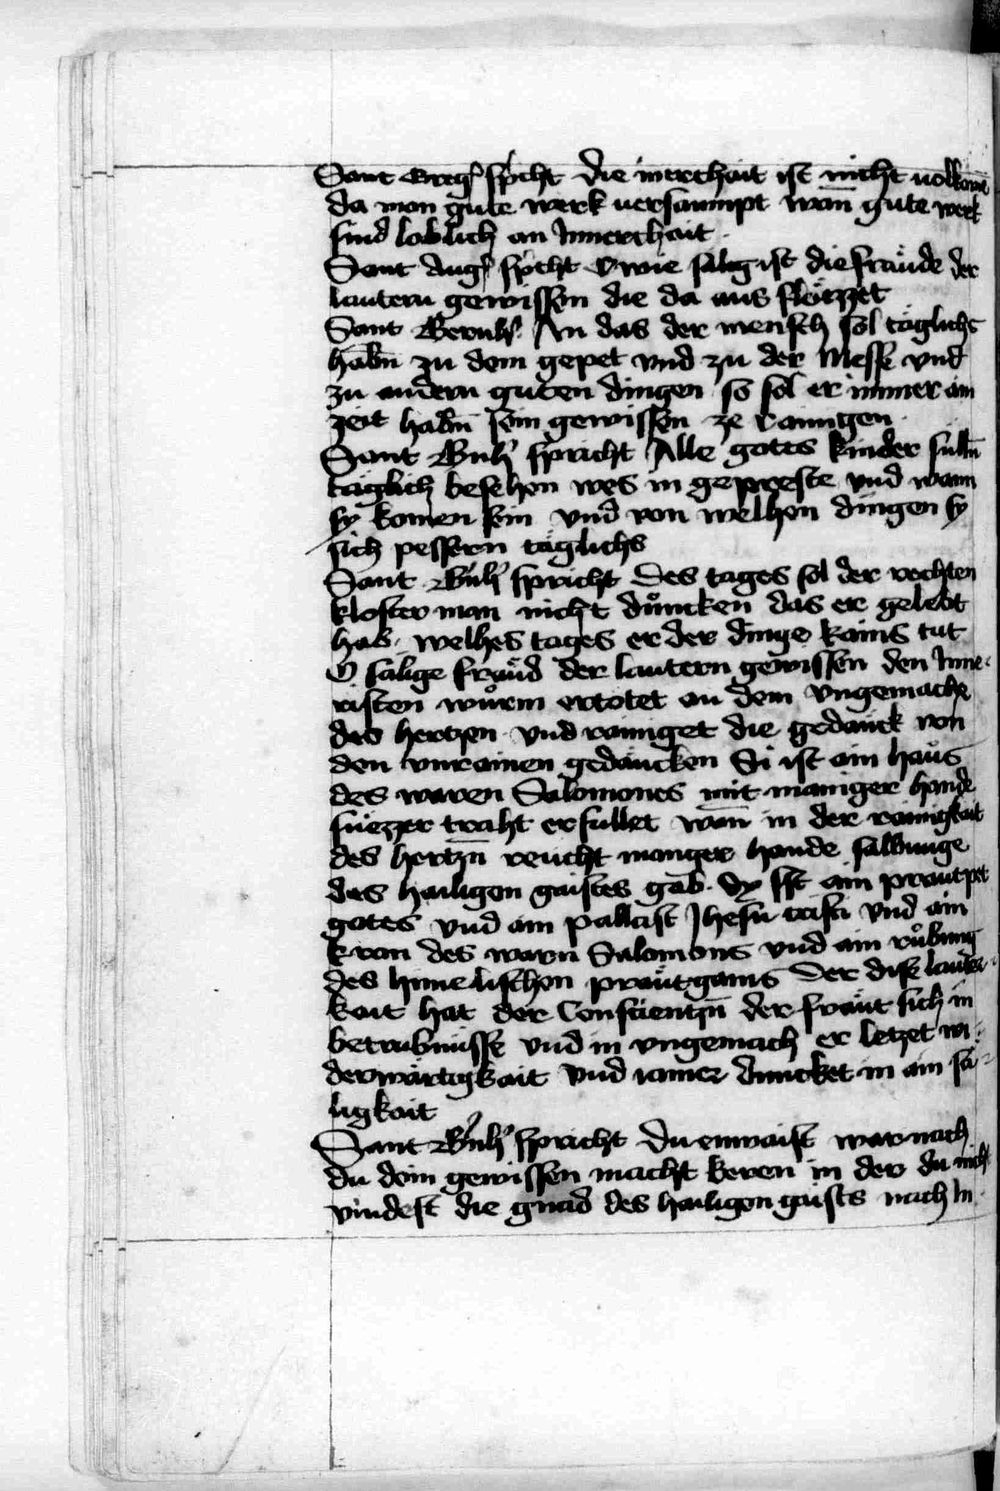 Sant Greg᷒ spͥcht die inerchait ist nicht uolkom̄
da man gute werk versaumpt wan̄ gute werk
sind loblich an Jnnerchait .
Sant Aug᷒ spͥcht O wie sälig ist die fräude der
lautern gewissen die da aus flötzzet
Sant Bernh᷒. An das der mensch sol täglichs
habn̄ zu dem gepet vnd zu der Messe vnd
zu andern guten dingen so sol er immer ain
zeit habn̄ sein gewissen ze rainigen .
Sant Bnh᷒ spricht Alle gotes kinder sulln̄
täglich besehen wes in gepreste vnd wann
sy komen sein vnd von welhen dingen sy
sich pessern täglichs
Sant Bnh᷒ spricht Des tages sol der rechten
kloster man nicht duͦncken das er gelebt
hab . welhes tages er der dinge kains tut
O salige fräud der lautern gewissen den Jnne-
risten wuͦrm ertotet an dem vngemache
des hertzen vnd rainiget die gedanck von
den vnrainen gedäncken Si ist ain haus
des waren Salomones mit maniger hande
suezzer traht erfullet wan̄ in der rainigkait
des hertzn̄ reucht manger hande salbunge
des hailigen gaistes gab . Sy ist ain prautpet
gotes vnd ain pallast Jhesu cristi vnd ain
kron des warn Salomons vnd ain ruͦbung
des himelischen präutgams Der dise lauter-
kait hat der Conscientzn̄ der fräut sich in
betrubnüsse vnd in vngemach er letzet wi-
derwärtigkait vnd iamer duncket in ain sä-
ligkait
Sant Bnh᷒ spricht Du enwaist war nach
du dein gewissen macht keren in der du nicht
vindest die gnad des hailigen gaists nach in